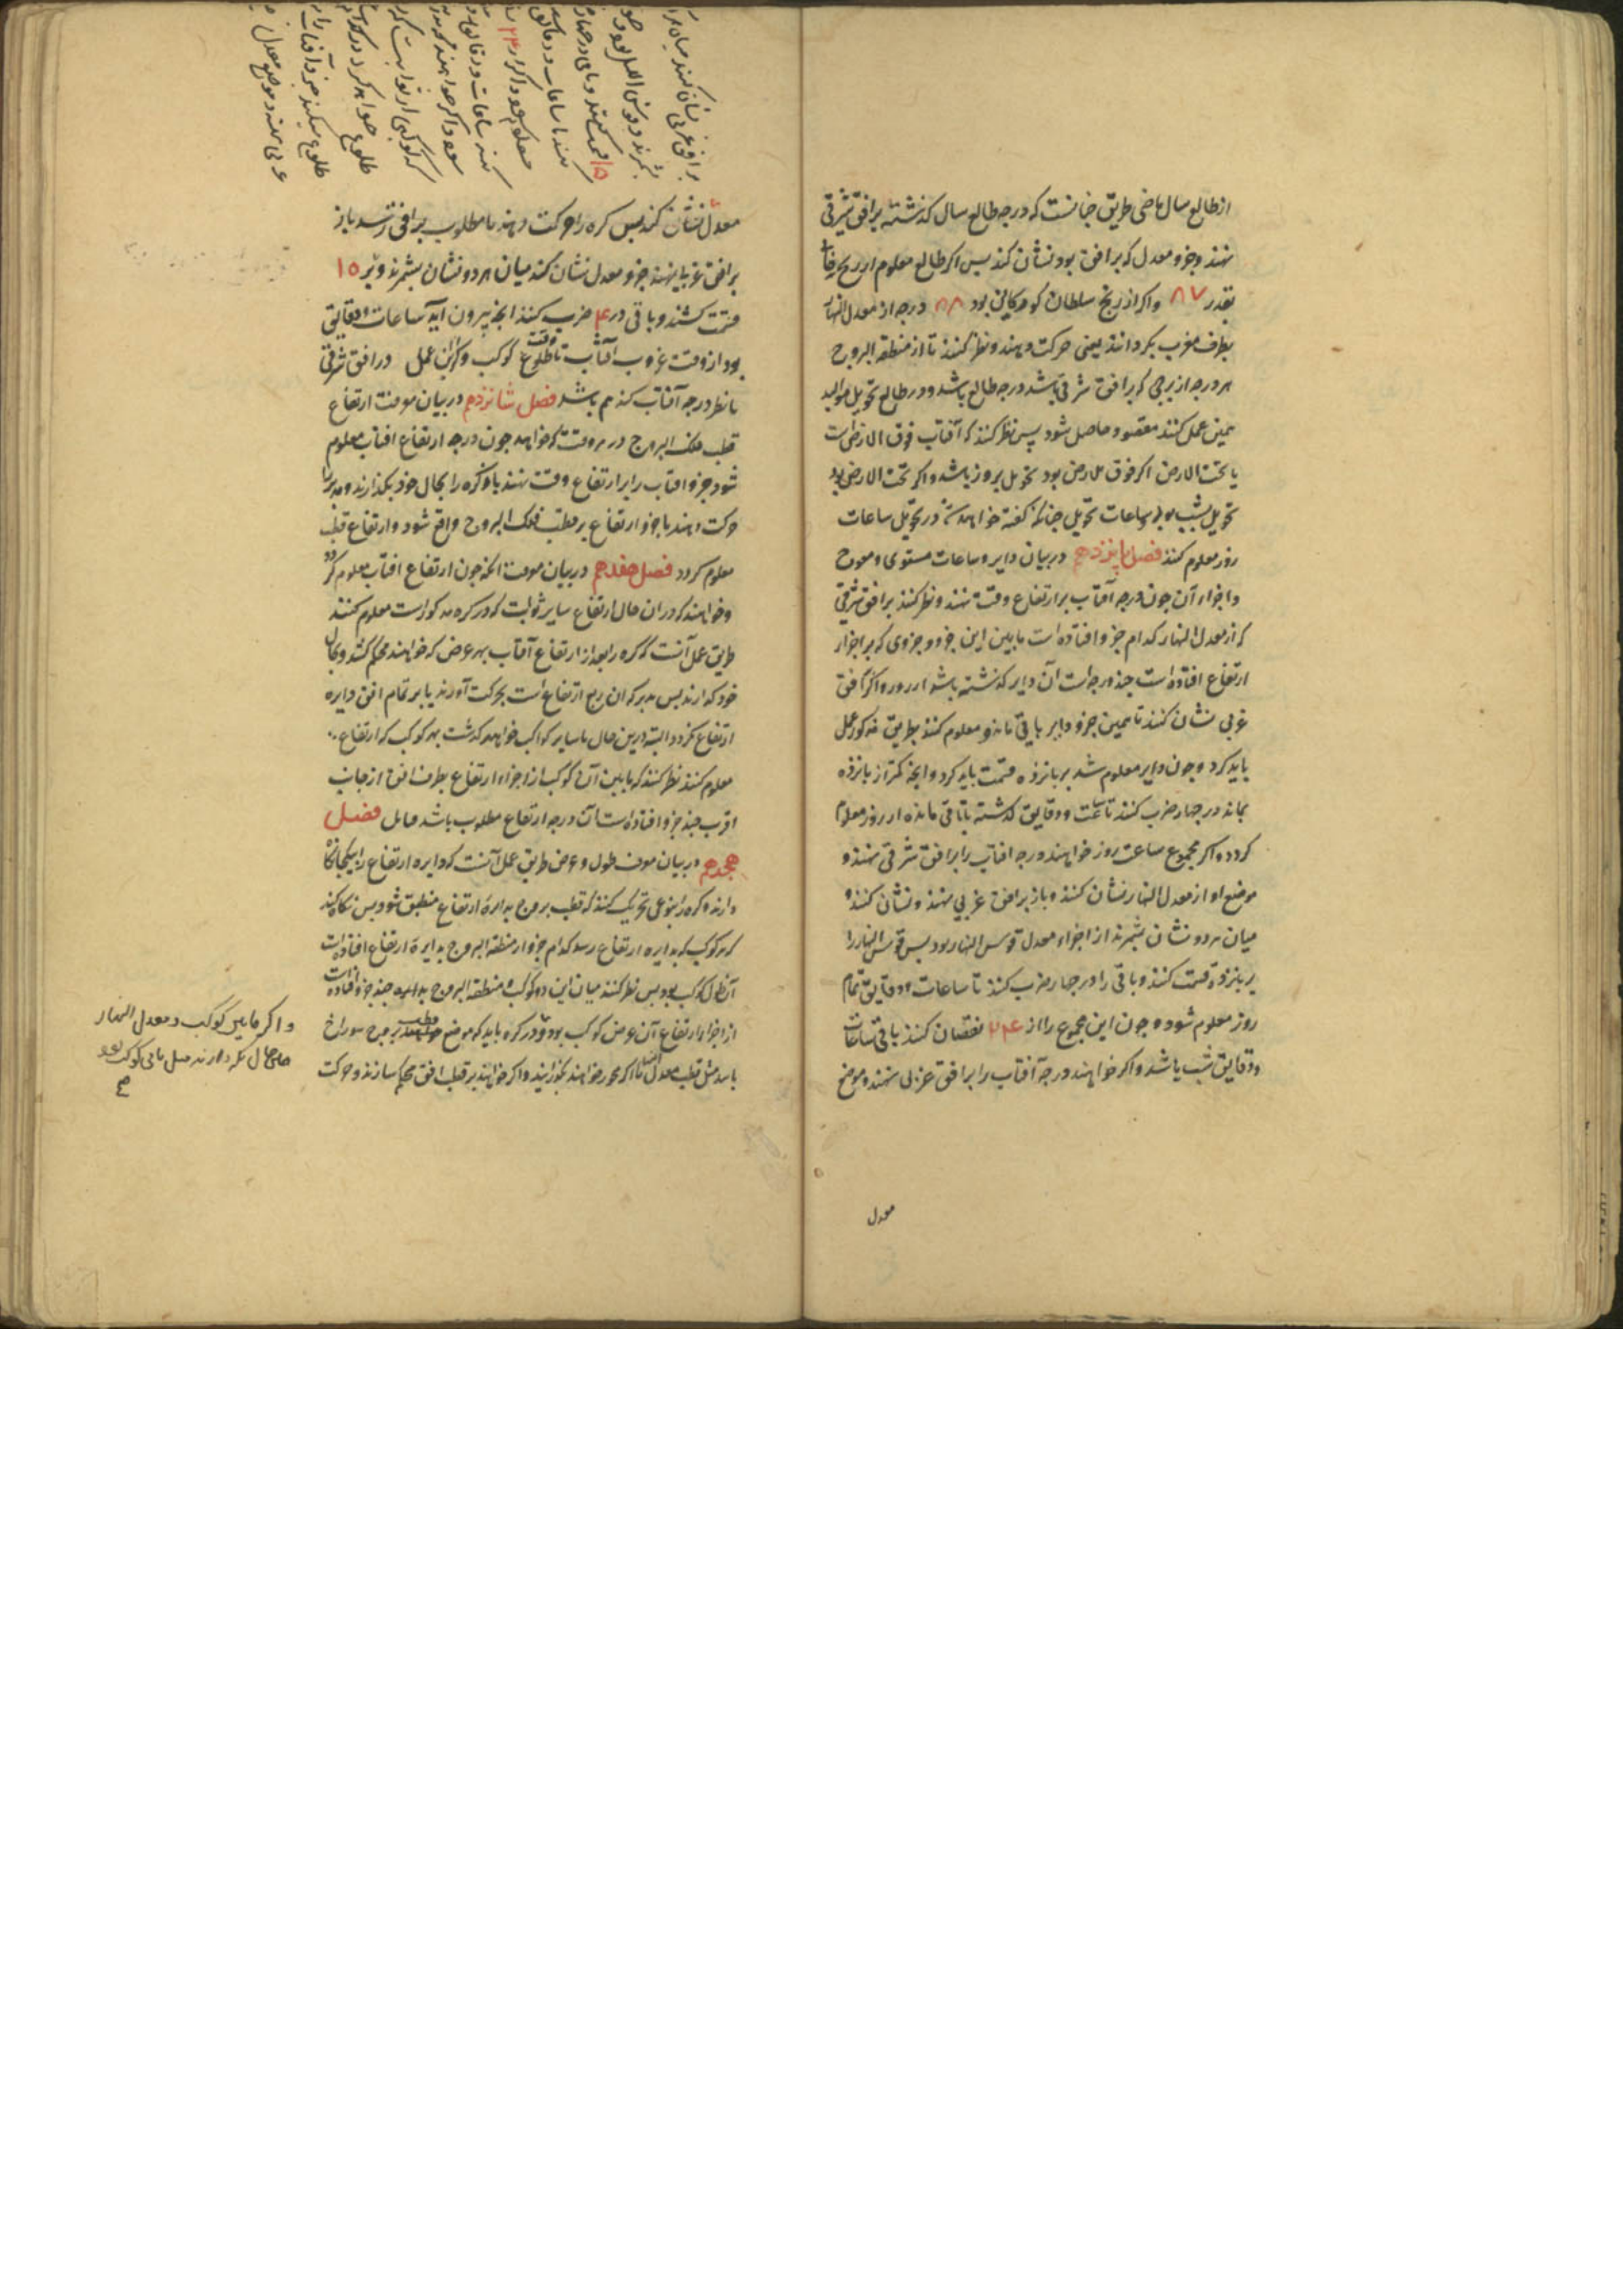 از طالع سال ماضی طریق چنانست که درجه طالع سال کذشته بر افق شرقی
نهند و جزو معدل که بر افق بود نشان کنند پس اکر طالع معلوم از زیج
بقدر ۸۷ و اکر از زیج سلطان کورکانی بود ۸۸ درجه از معدل النهار
بطرف مغرب بکردانند یعنی حرکت دهند و نظر کنند تا از منطقة البروج
هر درجه از برجی که بر افق شرقی باشد درجه طالع باشد و در طالع تحویل موالید
همین عمل کنند مقصود حاصل شود پس نظر کنند که آفتاب فوق الارض است
یا تحت الارض اکر فوق الارض بود تحویل بروز باشد و اکر تحت الارض بود
تحویل بشب بود و ساعات تحویل چنانکه کفته خواهد شد در تحویل ساعات
روز معلوم کنند فصل پانزدهم در بیان دایر و ساعات مستوی و معوج
و اجزاء آن چون درجه آفتاب بر ارتفاع وقت نهند و نظر کنند بر افق شرقی
که از معدل النهار کدام جزو افتاده است ما بین این جزو و جزوی که بر اجزاء
ارتفاع افتاده است چند درجه است آن دایر کذشته باشد از روز و اکر افق
غربی نشان کنند تا همین جزو دایر باقی مانده معلوم کنند بطریق مذکور عمل
باید کرد و چون دایر معلوم شد بر پانزده قسمت باید کرد و انچه کمتر از پانزده
بماند در چهار ضرب کنند تا ساعت و دقایق کذشته یا باقی مانده از روز معلوم
کردد و اکر مجموع ساعت روز خواهند درجه افتاب را بر افق شرقی نهند و
موضع او از معدل النهار نشان کنند و باز بر افق غربی نهند و نشان کنند و
میان هر دو نشان بشمرند از اجزاء معدل قوس النهار بود پس قوس النهار را
بر پانزده قسمت کنند و باقی را در چهار ضرب کنند تا ساعات و دقایق تمام
روز معلوم شود و چون این مجموع را از ۲۴ نقصان کنند باقی ساعات
و دقایق شب باشد و اکر خواهند درجه آفتاب را بر افق غربی نهند و موضع
معدل
معدل نشان کنند پس کره را حرکت دهند تا مطلوب بر افق رسد باز
بر افق غربی نهند جزو معدل نشان کنند میان هر دو نشان بشمرند و بر ۱۵
قسمت کنند و باقی در ۴ ضرب کنند انچه بیرون آید ساعات و دقایق
بود از وقت غروب آفتاب تا وقت طلوع کوکب و اکر این عمل در افق شرقی
با نظیر درجه آفتاب کنند هم باشد فصل شانزدهم در بیان معرفت ارتفاع
قطب فلک البروج در هر وقت که خواهند چون درجه ارتفاع افتاب معلوم
شود جزو افتاب را بر ارتفاع وقت نهند و کره را بحال خود بکذارند و
حرکت دهند تا جزو ارتفاع بر قطب فلک البروج واقع شود و ارتفاع قطب
معلوم کردد فصل هفدهم در بیان معرفت انکه چون ارتفاع افتاب معلوم کردد
و خواهند که در ان حال ارتفاع سایر ثوابت که در کره مذکور است معلوم کنند
طریق عمل آنست که کره را بعد از ارتفاع آفتاب بهر عرض که خواهند محکم کنند و بحال
خود کذارند پس مدیر که ان ربع ارتفاع است بحرکت آورند تا بر تمام افق دایره
ارتفاع کردد و البته درین حال با سایر کواکب خواهد کذشت بهر کوکب که ارتفاع
معلوم کنند نظر کنند که ما بین آن کوکب از اجزاء ارتفاع بطرف افق از جانب
اقرب چند جزو افتاده است آن درجه ارتفاع مطلوب باشد فصل
هجدهم در بیان معرفت طول و عرض طریق عمل آنست که دایره ارتفاع را بیکجا نکاه
دارند و کره را بنوعی تحریک کنند که قطب بروج بدایره ارتفاع منطبق شود پس نکاه کنند
که هر کوکب که بدایره ارتفاع رسد کدام جزو از منطقة البروج بدایره ارتفاع افتاده است
آن طول کوکب بود پس نظر کنند میان این دو کوکب و منطقة البروج بدایره چند جزو افتاده است
از اجزاء ارتفاع آن عرض کوکب بود و در کره باید که موضع قطب بروج سوراخ
باشد مثل قطب معدل النهار تا اکر محور خواهند بکذرانند و اکر خواهند بر قطب افق محکم سازند و حرکت
و اکر ما بین کوکب و معدل النهار
نکاه دارند میل باقی کوکب بود
بر افق غربی نشان کنند میان هر
بشمرند قوس اللیل بود
۱۵ قسمت کنند و باقی در چهار
کنند تا ساعات و دقایق
معلوم شود و اکر از ۲۴
کنند ساعات و دقایق
شود و اکر خواهند
که کوکبی از ثوابت که
طلوع خواهد کرد در کدام
طلوع میکند جزو آفتاب را بر
غربی نهند و موضع معدل